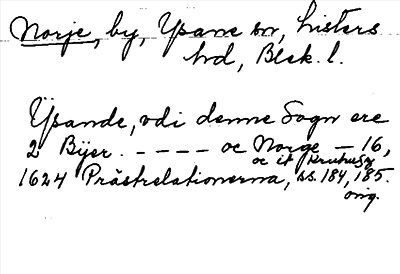 Norje, by, Ysane sn, Listers
hd, Blek. l.
Ysande, vdi denne Sogn ere
2 Bÿer. - - - - oc Norge - 16,
oc it Kruhusz
1624 Prästrelationerna, ss. 184, 185.
orig.